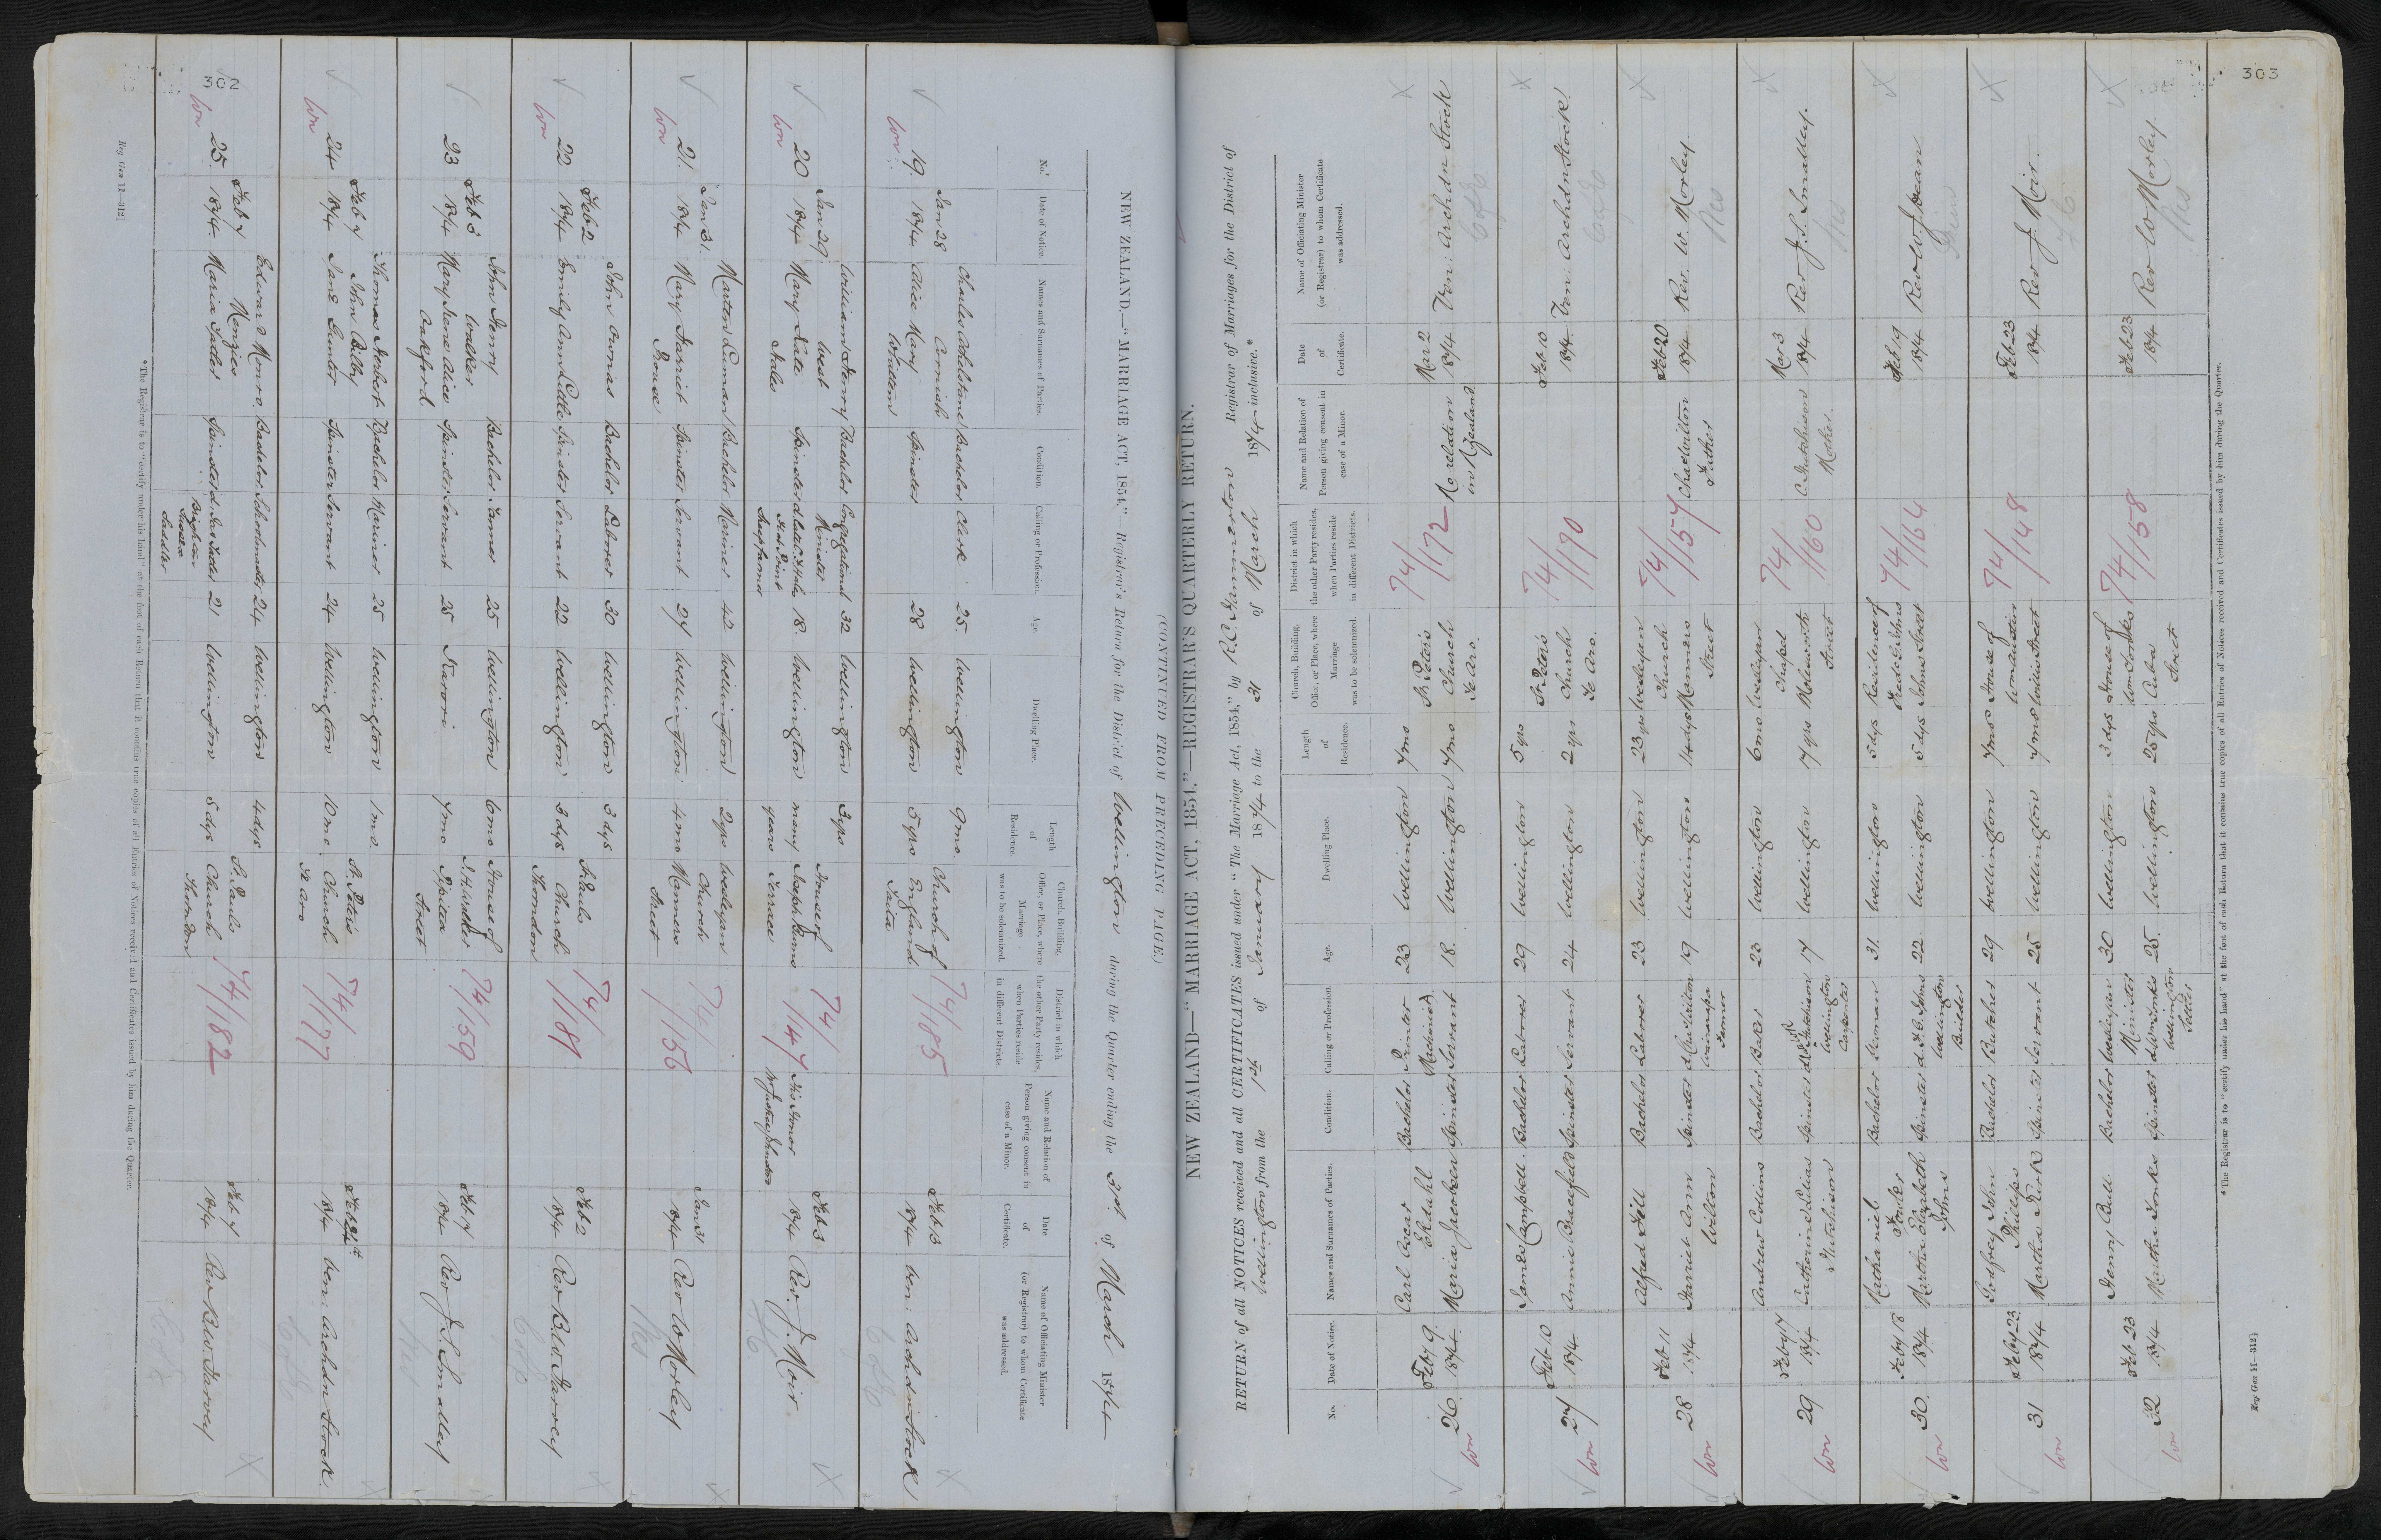 302
NEW ZEALAND.—"MARRIAGE ACT, 1854."—Registrar's Return for the District of Wellington during the Quarter ending the 31st of March 1874
No.
Date of Notice.
Names and Surnames of Parties.
Condition.
Calling or Profession.
Age.
Dwelling Place.
Length of Residence.
Church, Building, Office, or Place, where Marriage was to be solemnized.
District in which the other Party resides, when Parties reside in different Districts.
Name and Relation of Person giving consent in case of a Minor.
Date of Certificate.
Name of Officiating Minister (or Registrar) to whom Certificate was addressed.
Won
19. Jan 28 1874
Charles Athelstane Cornish Bachelor Clerk 25. Wellington 9 mo.
Alice Mary Spinster 28 Wellington 5 yrs
Church of England Taita
74/185
Feb 3 1874 Ven: Archdn Stock
CofE
Won
20 Jan 29 1874
William Henry West Bachelor Congregational Minister 32 Wellington 3 yrs
Mary Kate Hales Spinster 18. Wellington many years
House of Joseph Burns Terrace
74/147
His Honor
Feb 3 1874 Rev. J. Moir
Won
21. Jan 31. 1874
Marten Bachelor Mariner 42 Wellington 2 yrs
Mary Harriet Prouse Spinster Servant 27 Wellington 4 mo
Wesleyan Church Manners Street
74/156
Jan 31 1874 Rev W Morley
Wes
Won
22 Feb 2 1874
John Owens Bachelor Laborer 30 Wellington 3 dys
Emily Ann Little Spinster Servant 22 Wellington 3 dys
St. Pauls Church Thorndon
74/181
Feb 2 1874 Rev B W Harvey
CofE
23 Feb 3 1874
John Henry Walker Bachelor Farmer 25 Wellington 6 mo
Mary Irene Alice Oakford Spinster Servant 25 Karori 7 mo
House of Pipitea Street
74/159
Feb 7 1874 Rev J. S. Smalley
Won
24 Feb 7 1874
Thomas Herbert John Bilby Bachelor Mariner 25 Wellington 1 mo.
Jane Gunter Spinster Servant 24 Wellington 10 mo.
St. Peters Church Te Aro
74/177
Feb 24th 1874 Ven: Archdn Stock.
CofE
Won
25. Feb 7 1874
Edward Monro Menzies Bachelor Schoolmaster 24 Wellington 4 dys
Maria Spinster Brighton Sussex Saddler 21 Wellington 5 dys
St. Pauls Church Thorndon
74/182
Feb 7 1874 Rev B W Harvey
CofE
*The Registrar is to "certify under his hand" at the foot of each Return that it contains true copies of all Entries of Notices received and Certificates issued by him during the Quarter.
Reg Gen 11—312]
303
(CONTINUED FROM PRECEDING PAGE.)
NEW ZEALAND—"MARRIAGE ACT, 1854."—REGISTRAR'S QUARTERLY RETURN.
RETURN of all NOTICES received and all CERTIFICATES issued under "The Marriage Act, 1854," by R. C. Hammerton Registrar of Marriages for the District of
Wellington from the 1st of January 1874 to the 31 of March 1874 inclusive.*
No.
Date of Notice.
Names and Surnames of Parties.
Condition.
Calling or Profession.
Age.
Dwelling Place.
Length of Residence.
Church, Building, Office, or Place, where Marriage was to be solemnized.
District in which the other Party resides, when Parties reside in different Districts.
Name and Relation of Person giving consent in case of a Minor.
Date of Certificate.
Name of Officiating Minister (or Registrar) to whom Certificate was addressed.
Won
26. Feby 9 1874
Carl Oscar Bachelor Printer (Machinist) 23 Wellington 7 mo
Maria Jacobsen Spinster Servant 18. Wellington 7 mo
St. Peters Church Te Aro.
74/172
No relation in N Zealand
Mar 2 1874 Ven: Archdn Stock
CofE
Won
27 Feb 10 1874
James Campbell. Bachelor Laborer 29 Wellington 5 yrs
Annie Spinster Servant 24 Wellington 2 yrs
St. Peters Church Te Aro.
74/170
Feb 10 1874 Ven: Archdn Stock
CofE
Won
28 Feb 11 1874
Alfred Hill Bachelor Laborer 23 Wellington 23 yrs
Harriet Ann Wilton Spinster d. Chas Wilton Farmer 19 Wellington 14 dys
Wesleyan Church Manners Street
74/157
Chas Wilton Father
Feb 20 1874 Rev. W. Morley
Wes
Won
29 Feby 17 1874
Andrew Collins Bachelor Baker 23 Wellington 6 mo
Catherine Lilias Hutchison Spinster Wellington Carpenter 17 Wellington 17 yrs
Wesleyan Chapel Molesworth Street
74/160
C. Hutchison Mother.
Mar 3 1874 Rev J. S. Smalley.
Wes
Won
30. Feby 18 1874
Nathaniel Fowler Bachelor Seaman 31. Wellington 5 dys
Martha Elizabeth Johns Spinster Wellington Builder 22 Wellington 5 dys
Residence of Johns Street
74/164
Feb 19 1874 Rev W. J. Dean
Won
31 Feby 23 1874
Godfrey John Phillips Bachelor Butcher 29 Wellington 7 mo
Martha Kirk Spinster Servant 25 Wellington 7 mo
House of Willis Street
74/148
Feb 23 1874 Rev J. Moir.
Won
32 Feb 23 1874
Henry Bull Bachelor Wesleyan Minister 30 Wellington 3 dys
Martha Tonks Spinster d. Wm Tonks Wellington Settler 25. Wellington 25 yrs
House of Wm Tonks Cuba Street
74/158
Feb 23 1874 Rev W Morley.
Wes
*The Registrar is to "certify under his hand" at the foot of each Return that it contains true copies of all Entries of Notices received and Certificates issued by him during the Quarter.
Reg Gen 11—312]